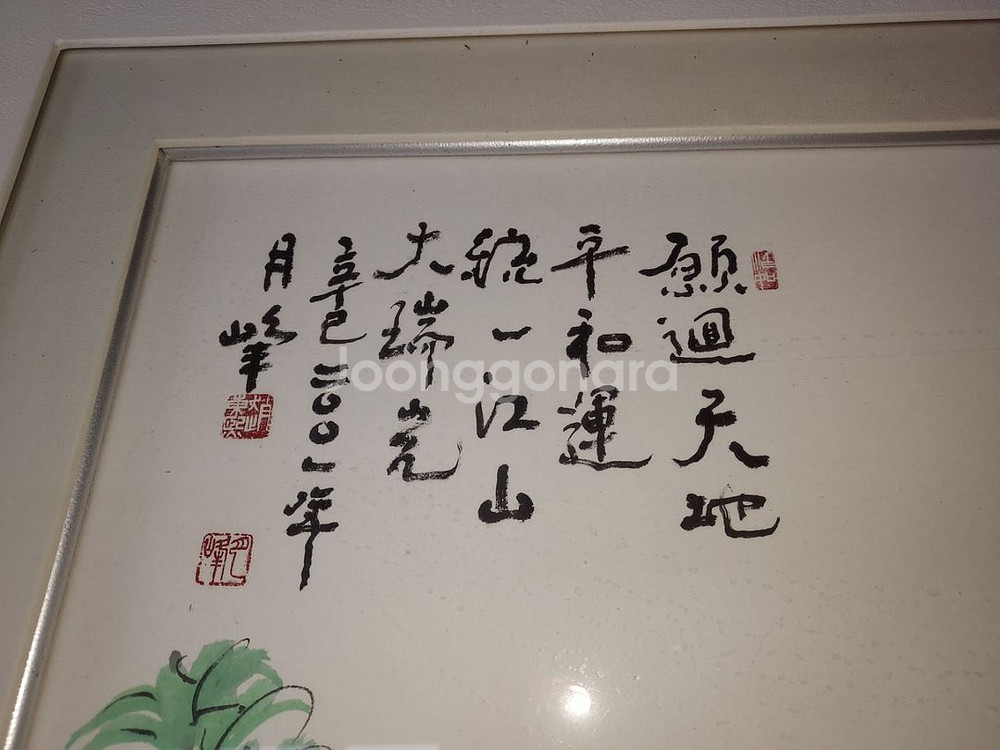 願迴天地
平和運
統一江山
大瑞光
辛巳二〇〇一年
月峰
joonggonara